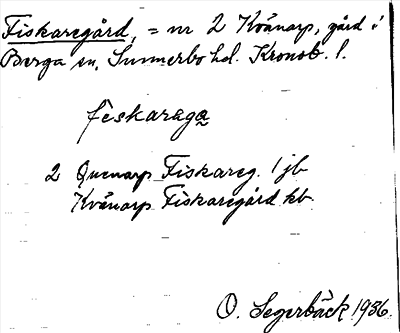 Fiskaregård, = nr 2 Kvänarp, gård i
Berga sn, Sunnerbo hd. Kronob. l.
feskaraga
2 Quenarp Fiskareg. 1 jb
Kvänarp Fiskaregård kb.
O. Segerbäck 1936.